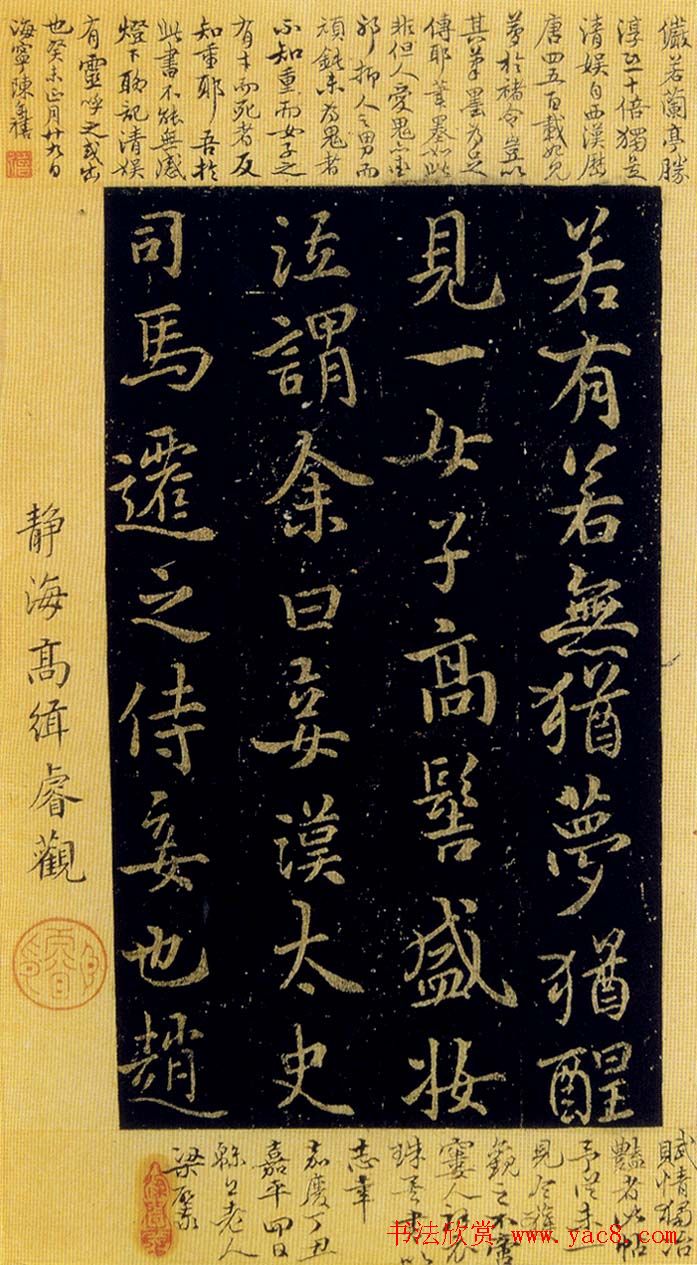 儼若蘭亭勝
淳三十倍獨是
清娛自西漢歷
唐四五百載始見
夢於褚令豈以
其筆墨為足
傳耶筆墨如此
非但人愛鬼亦
耶抑人之男而
頑鈍未為鬼者
不知重而女子之
有才而死者反
知重耶吾於
此書不能無感
燈下聊記清娛
有靈呼之或出
也癸未正月廿九日
海寧陳奕禧
若有若無猶夢猶醒
見一女子高髻盛妝
泣謂余曰妾漢太史
司馬遷之侍妾也趙
靜海高緝睿觀
賦情獨冶
豔者此帖
予從未一
見今獲
觀之不啻
窶人
珠
志幸
嘉慶丁丑
嘉平四日
老人
梁
书法欣赏 www.yac8.com